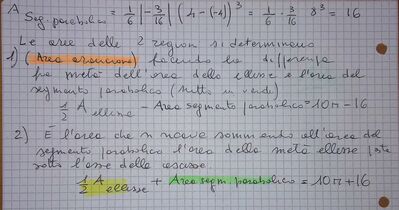 A Seg. parabolico = 1/6 |-3/16| (4-(-4))³ = 1/6 · 3/16 8³ = 16
Le aree delle 2 regioni si determinano
1) (Area arancione) facendo la differenza
fra metà dell'area della ellisse e l'area del
segmento parabolico (tutto in verde)
1/2 A ellisse - Area segmento parabolico = 10π - 16
2) È l'area che si trova sommando all'area del
segmento parabolico l'area della metà ellisse
sotto l'asse delle ascisse.
1/2 A ellisse + Area segm. parabolico = 10π + 16